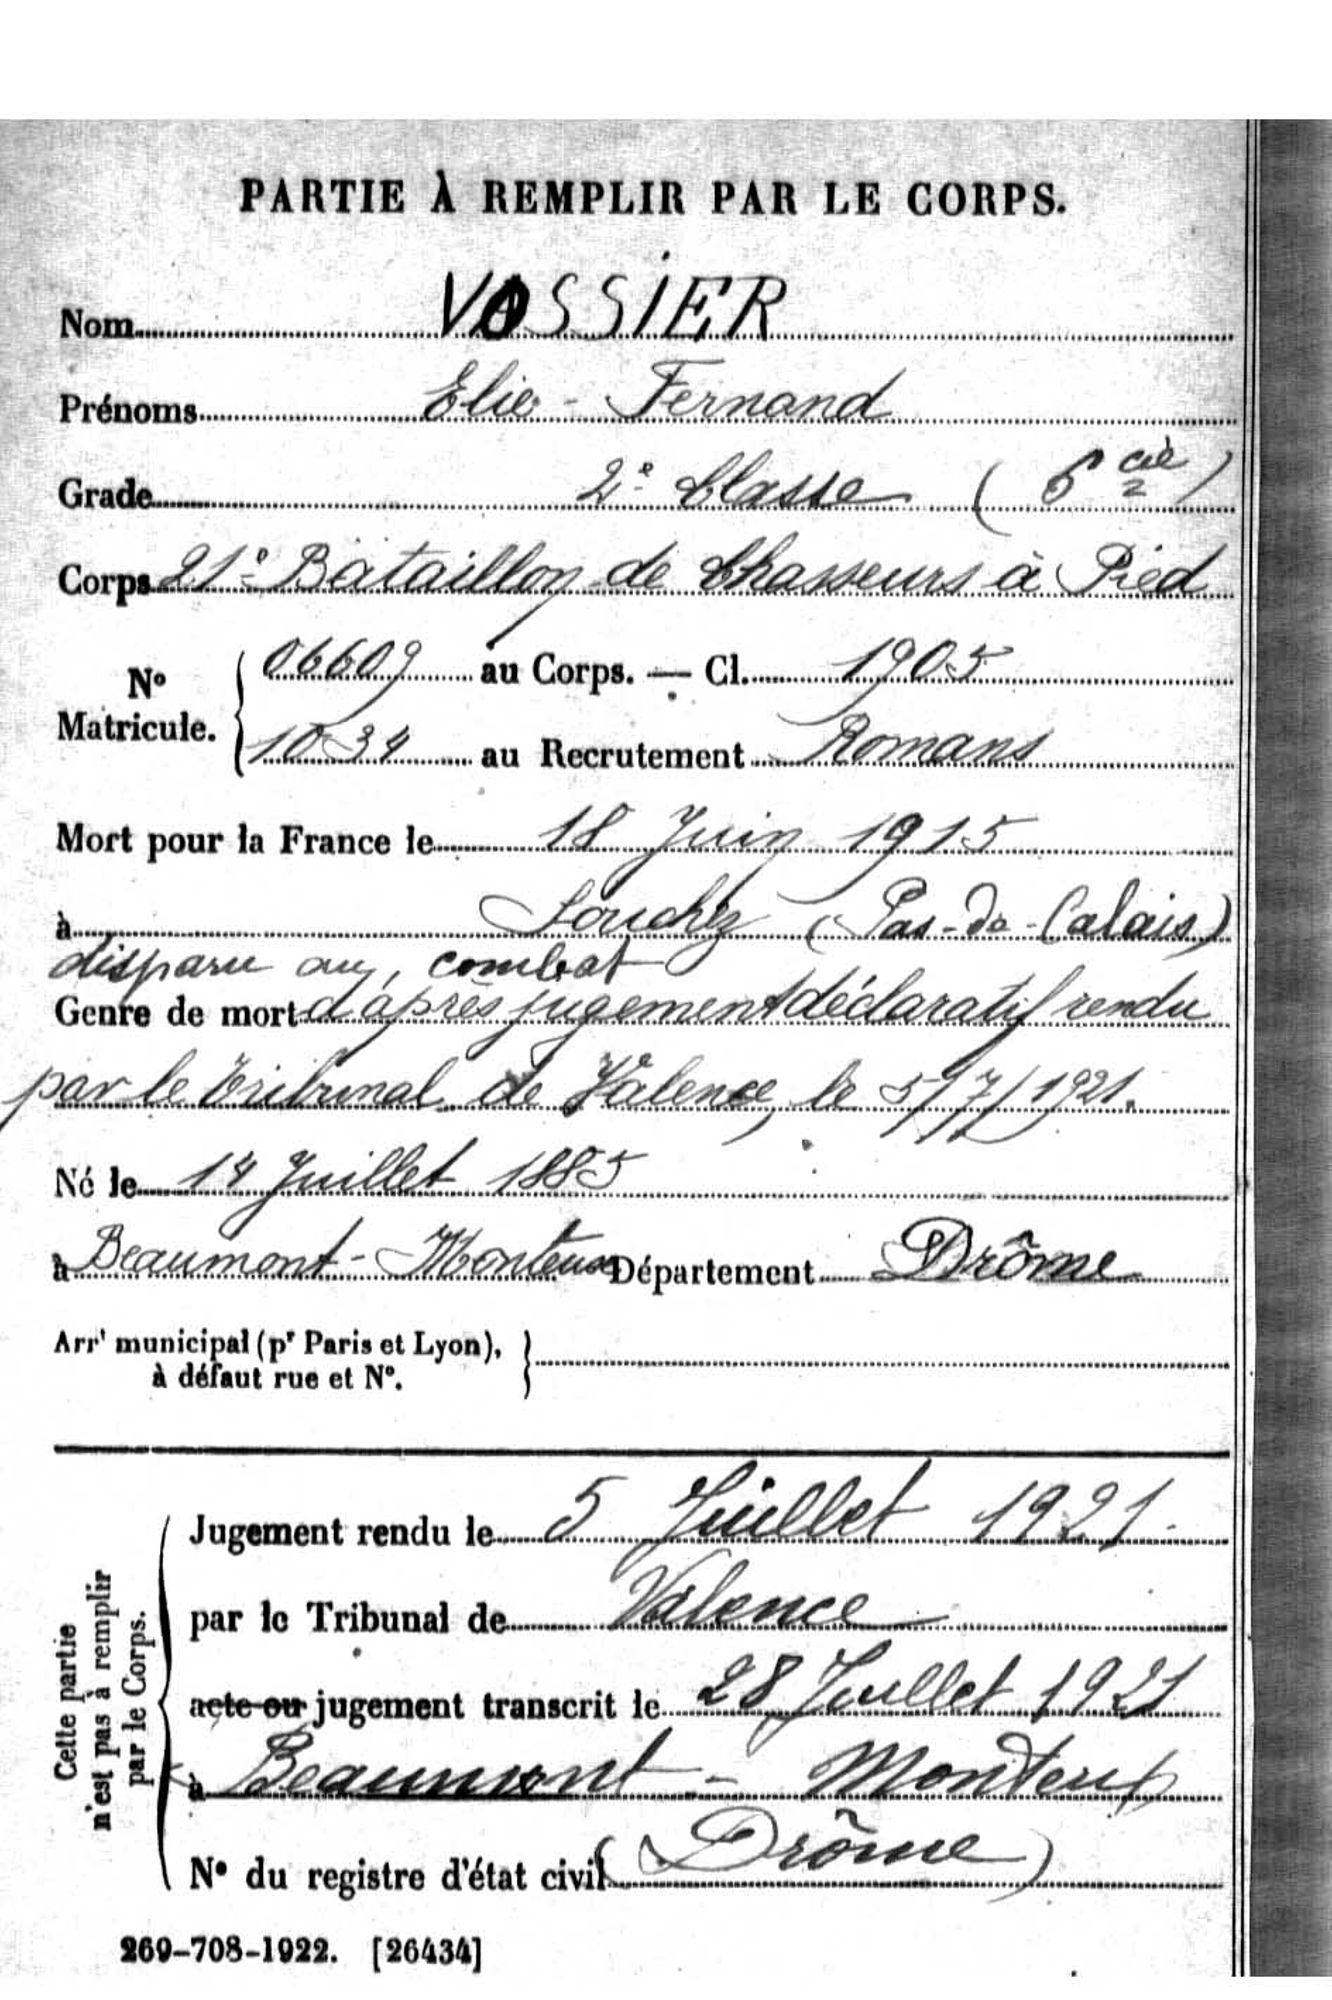 PARTIE À REMPLIR PAR LE CORPS.
Nom VOSSIER
Prénoms Elie - Fernand
Grade 2e Classe (6 cie)
Corps 21e Bataillon de Chasseurs à Pied
No Matricule. { 06609 au Corps. — Cl. 1905
1034 au Recrutement Romans
Mort pour la France le 18 Juin 1915
à Souchez (Pas-de-Calais)
disparu au combat
Genre de mort d'après jugement déclaratif rendu
par le Tribunal de Valence, le 5/7/1921.
Né le 14 Juillet 1885
à Beaumont-Monteux Département Drôme
Arrt municipal (pr Paris et Lyon),
à défaut rue et No. }
Cette partie
n'est pas à remplir
par le Corps.
Jugement rendu le 5 Juillet 1921.
par le Tribunal de Valence
acte ou jugement transcrit le 28 Juillet 1921
à Beaumont - Monteux
No du registre d'état civil (Drôme)
269-708-1922. [26434]